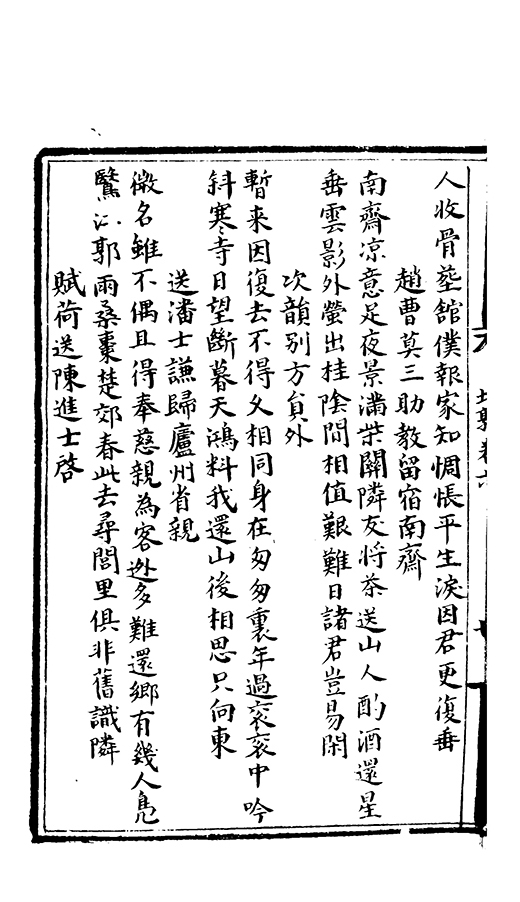 人收骨塟舘僕報家知惆悵平生淚因君更復垂
趙曹莫三助教留宿南齋
南齋凉意足夜景滿柴關隣友將茶送山人酌酒還星
垂雲影外螢出桂陰間相值艱難日諸君豈易閑
次韻別方員外
暫来因復去不得久相同身在匆匆裏年過衮衮中吟
斜寒寺日望斷暮天鴻料我還山後相思只向東
送潘士謙歸廬州省親
微名雖不偶且得奉慈親為客逊多難還鄉有幾人鳬
鷖江郭雨桑棗楚郊春此去尋閭里俱非舊識隣
賦荷送陳進士啓